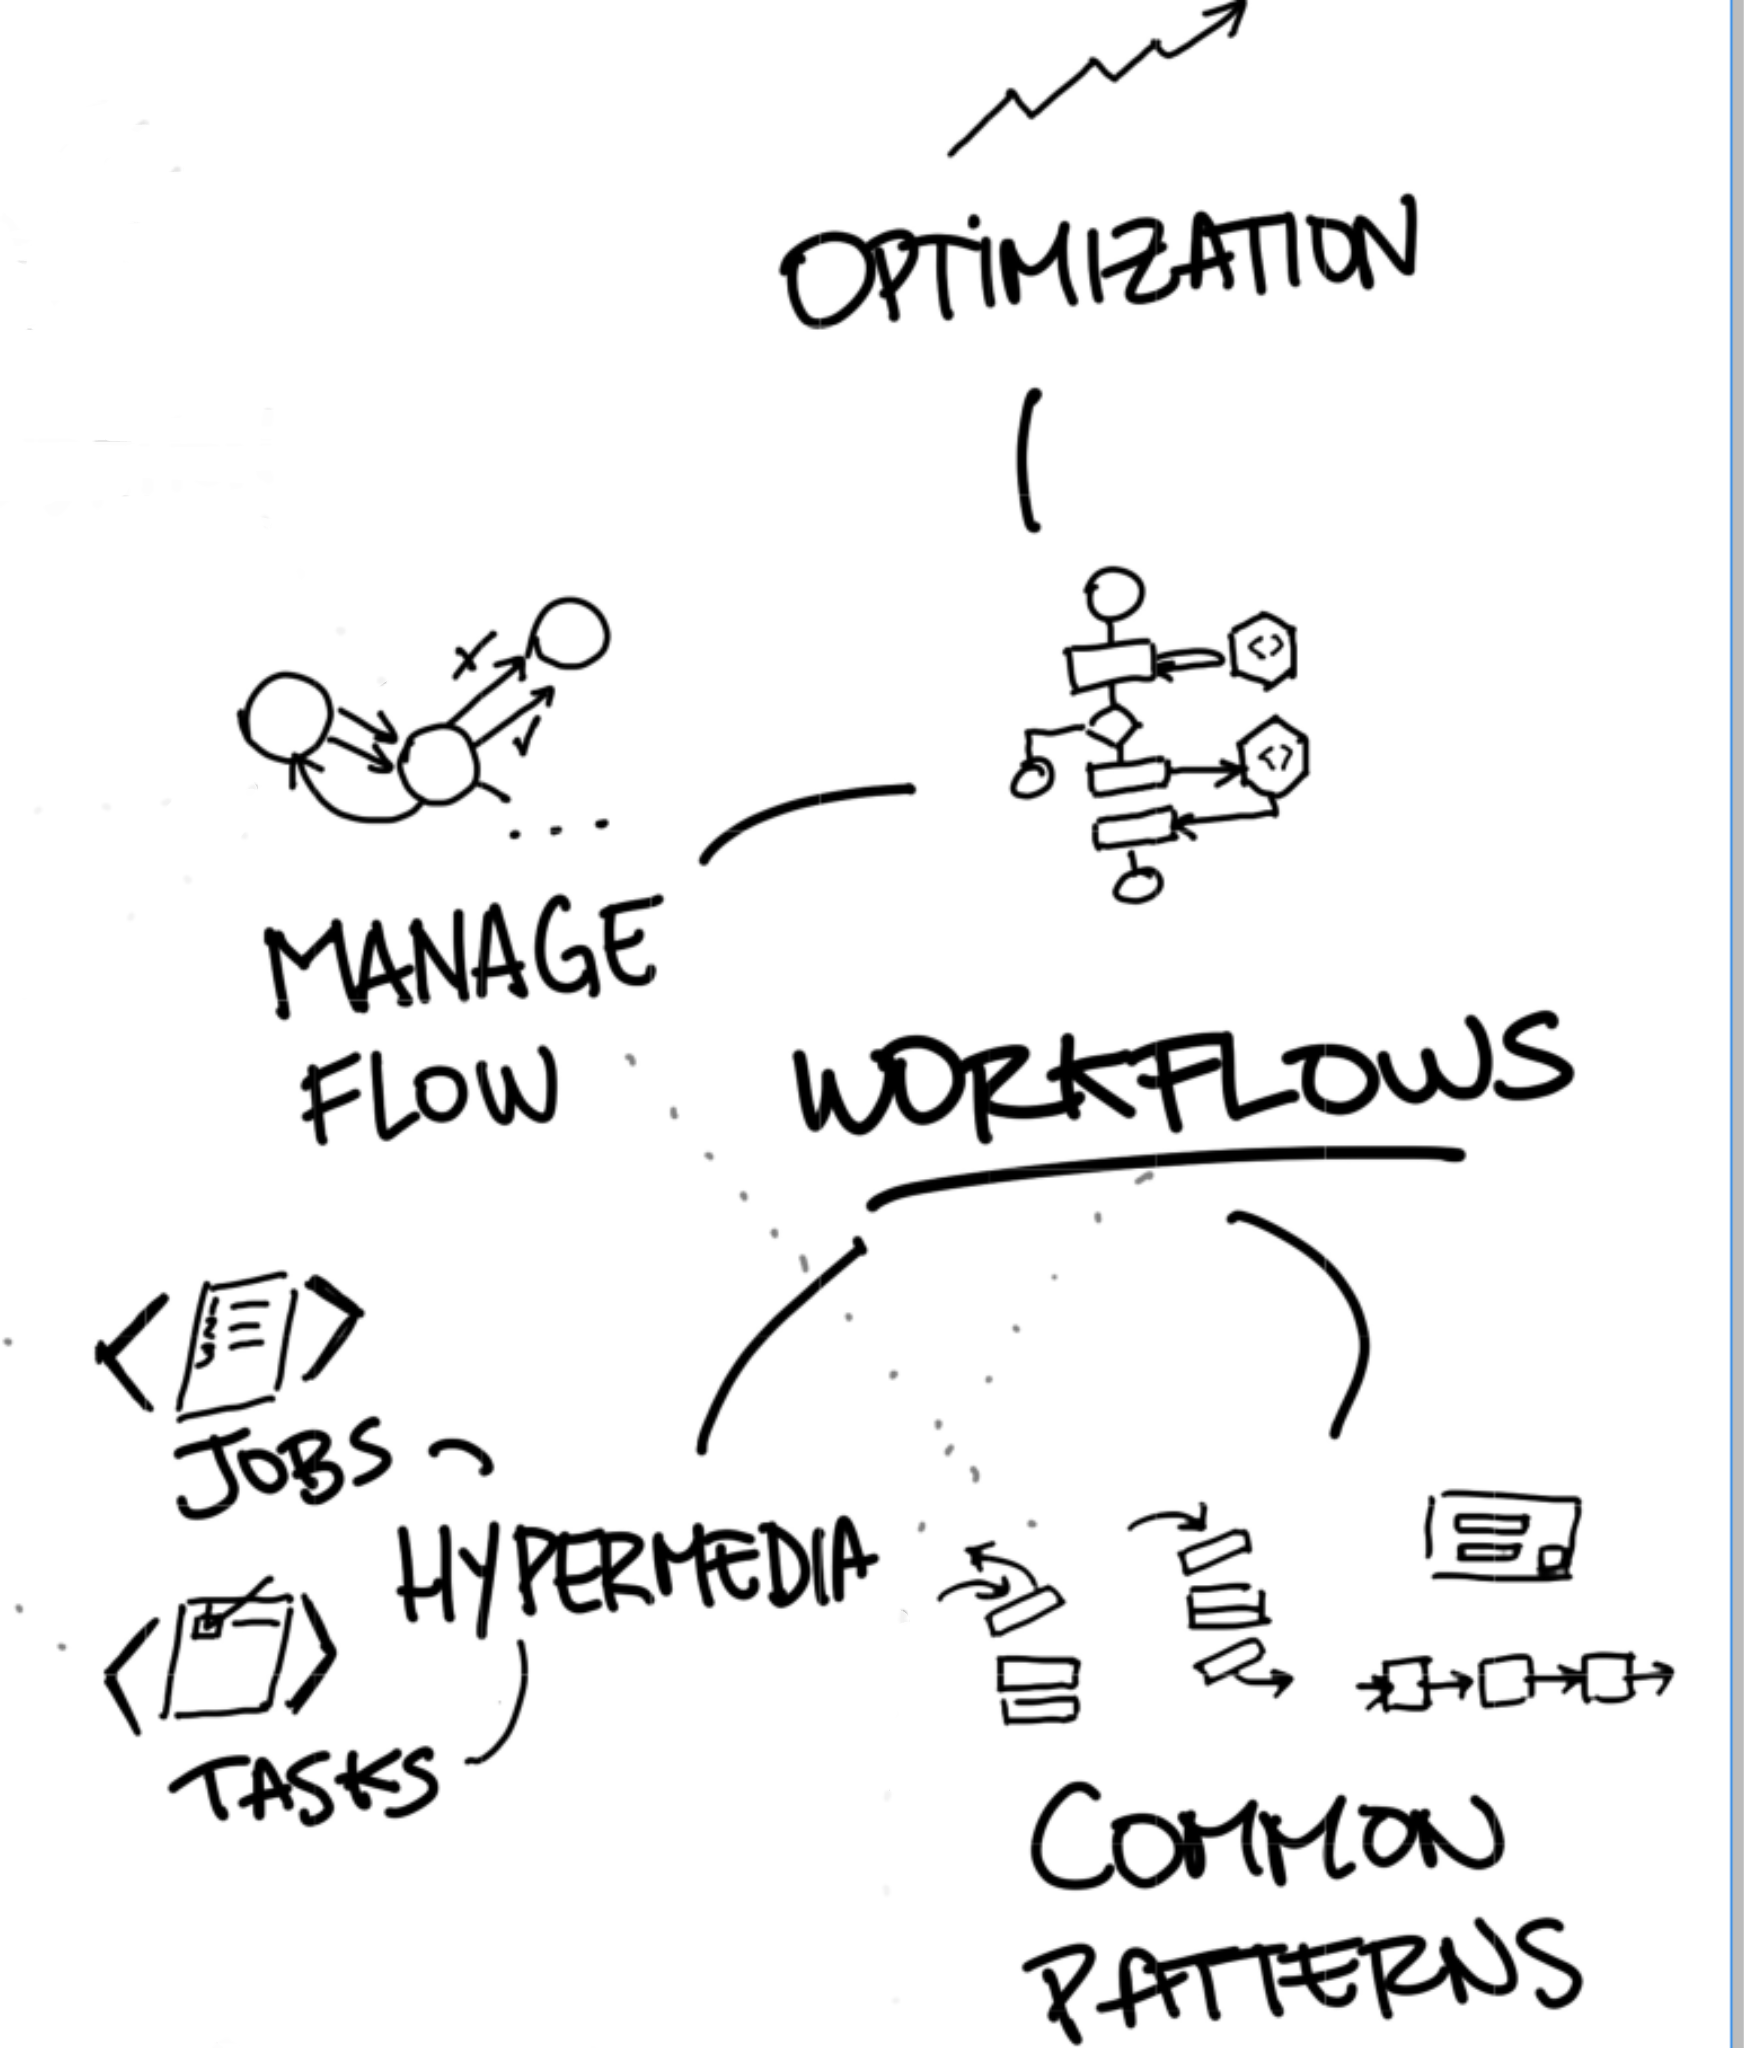 OPTIMIZATION
MANAGE
FLOW
WORKFLOWS
1
2
3
JOBS
HYPERMEDIA
TASKS
COMMON
PATTERNS